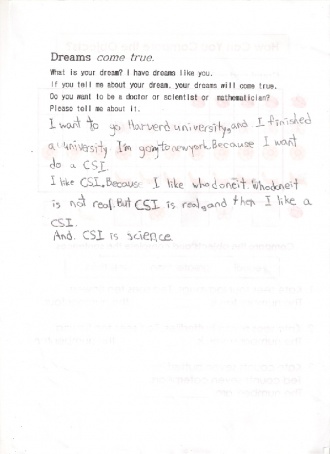 Dreams come true.
What is your dream? I have dreams like you.
If you tell me about your dream, your dreams will come true.
Do you want to be a doctor or scientist or mathematician?
Please tell me about it.
I want to go Harverd university, and I finished
a university I'm going to newyork. Because I want
do a CSI.
I like CSI. Because I like whodoneit. Whodoneit
is not real. But CSI is real, and then I like a
CSI.
And. CSI is science